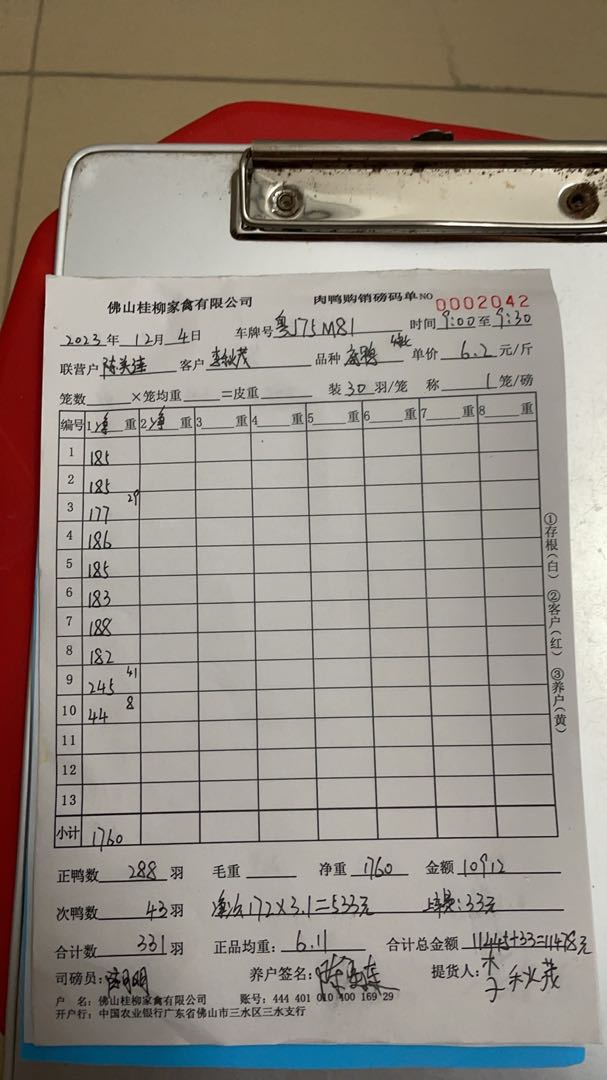 佛山桂柳家禽有限公司 肉鸭购销磅码单 NO 0002042
2023年 12月 4日 车牌号 粤J75M81 时间 9:00至9:30
联营户 陈美连 客户 李秋茂 品种 单价 6.2 元/斤
笼数 ×笼均重 =皮重 装 30 羽/笼 称 1 笼/磅
编号 1 净 重 2 净 重 3 重 4 重 5 重 6 重 7 重 8 重
1 185
2 185
3 177 29
4 186
5 185
6 183
7 188
8 182
9 245 41
10 44 8
11
12
13
小计 1760
①存根(白) ②客户(红) ③养户(黄)
正鸭数 288 羽 毛重 净重 1760 金额 10912
次鸭数 43 羽 172×3.1=533元 :33元
合计数 331 羽 正品均重: 6.11 合计总金额 11445+33=11478元
司磅员: 养户签名: 提货人: 李秋茂
户 名: 佛山桂柳家禽有限公司 账号: 444 401 010 400 169 29
开户行: 中国农业银行广东省佛山市三水区三水支行